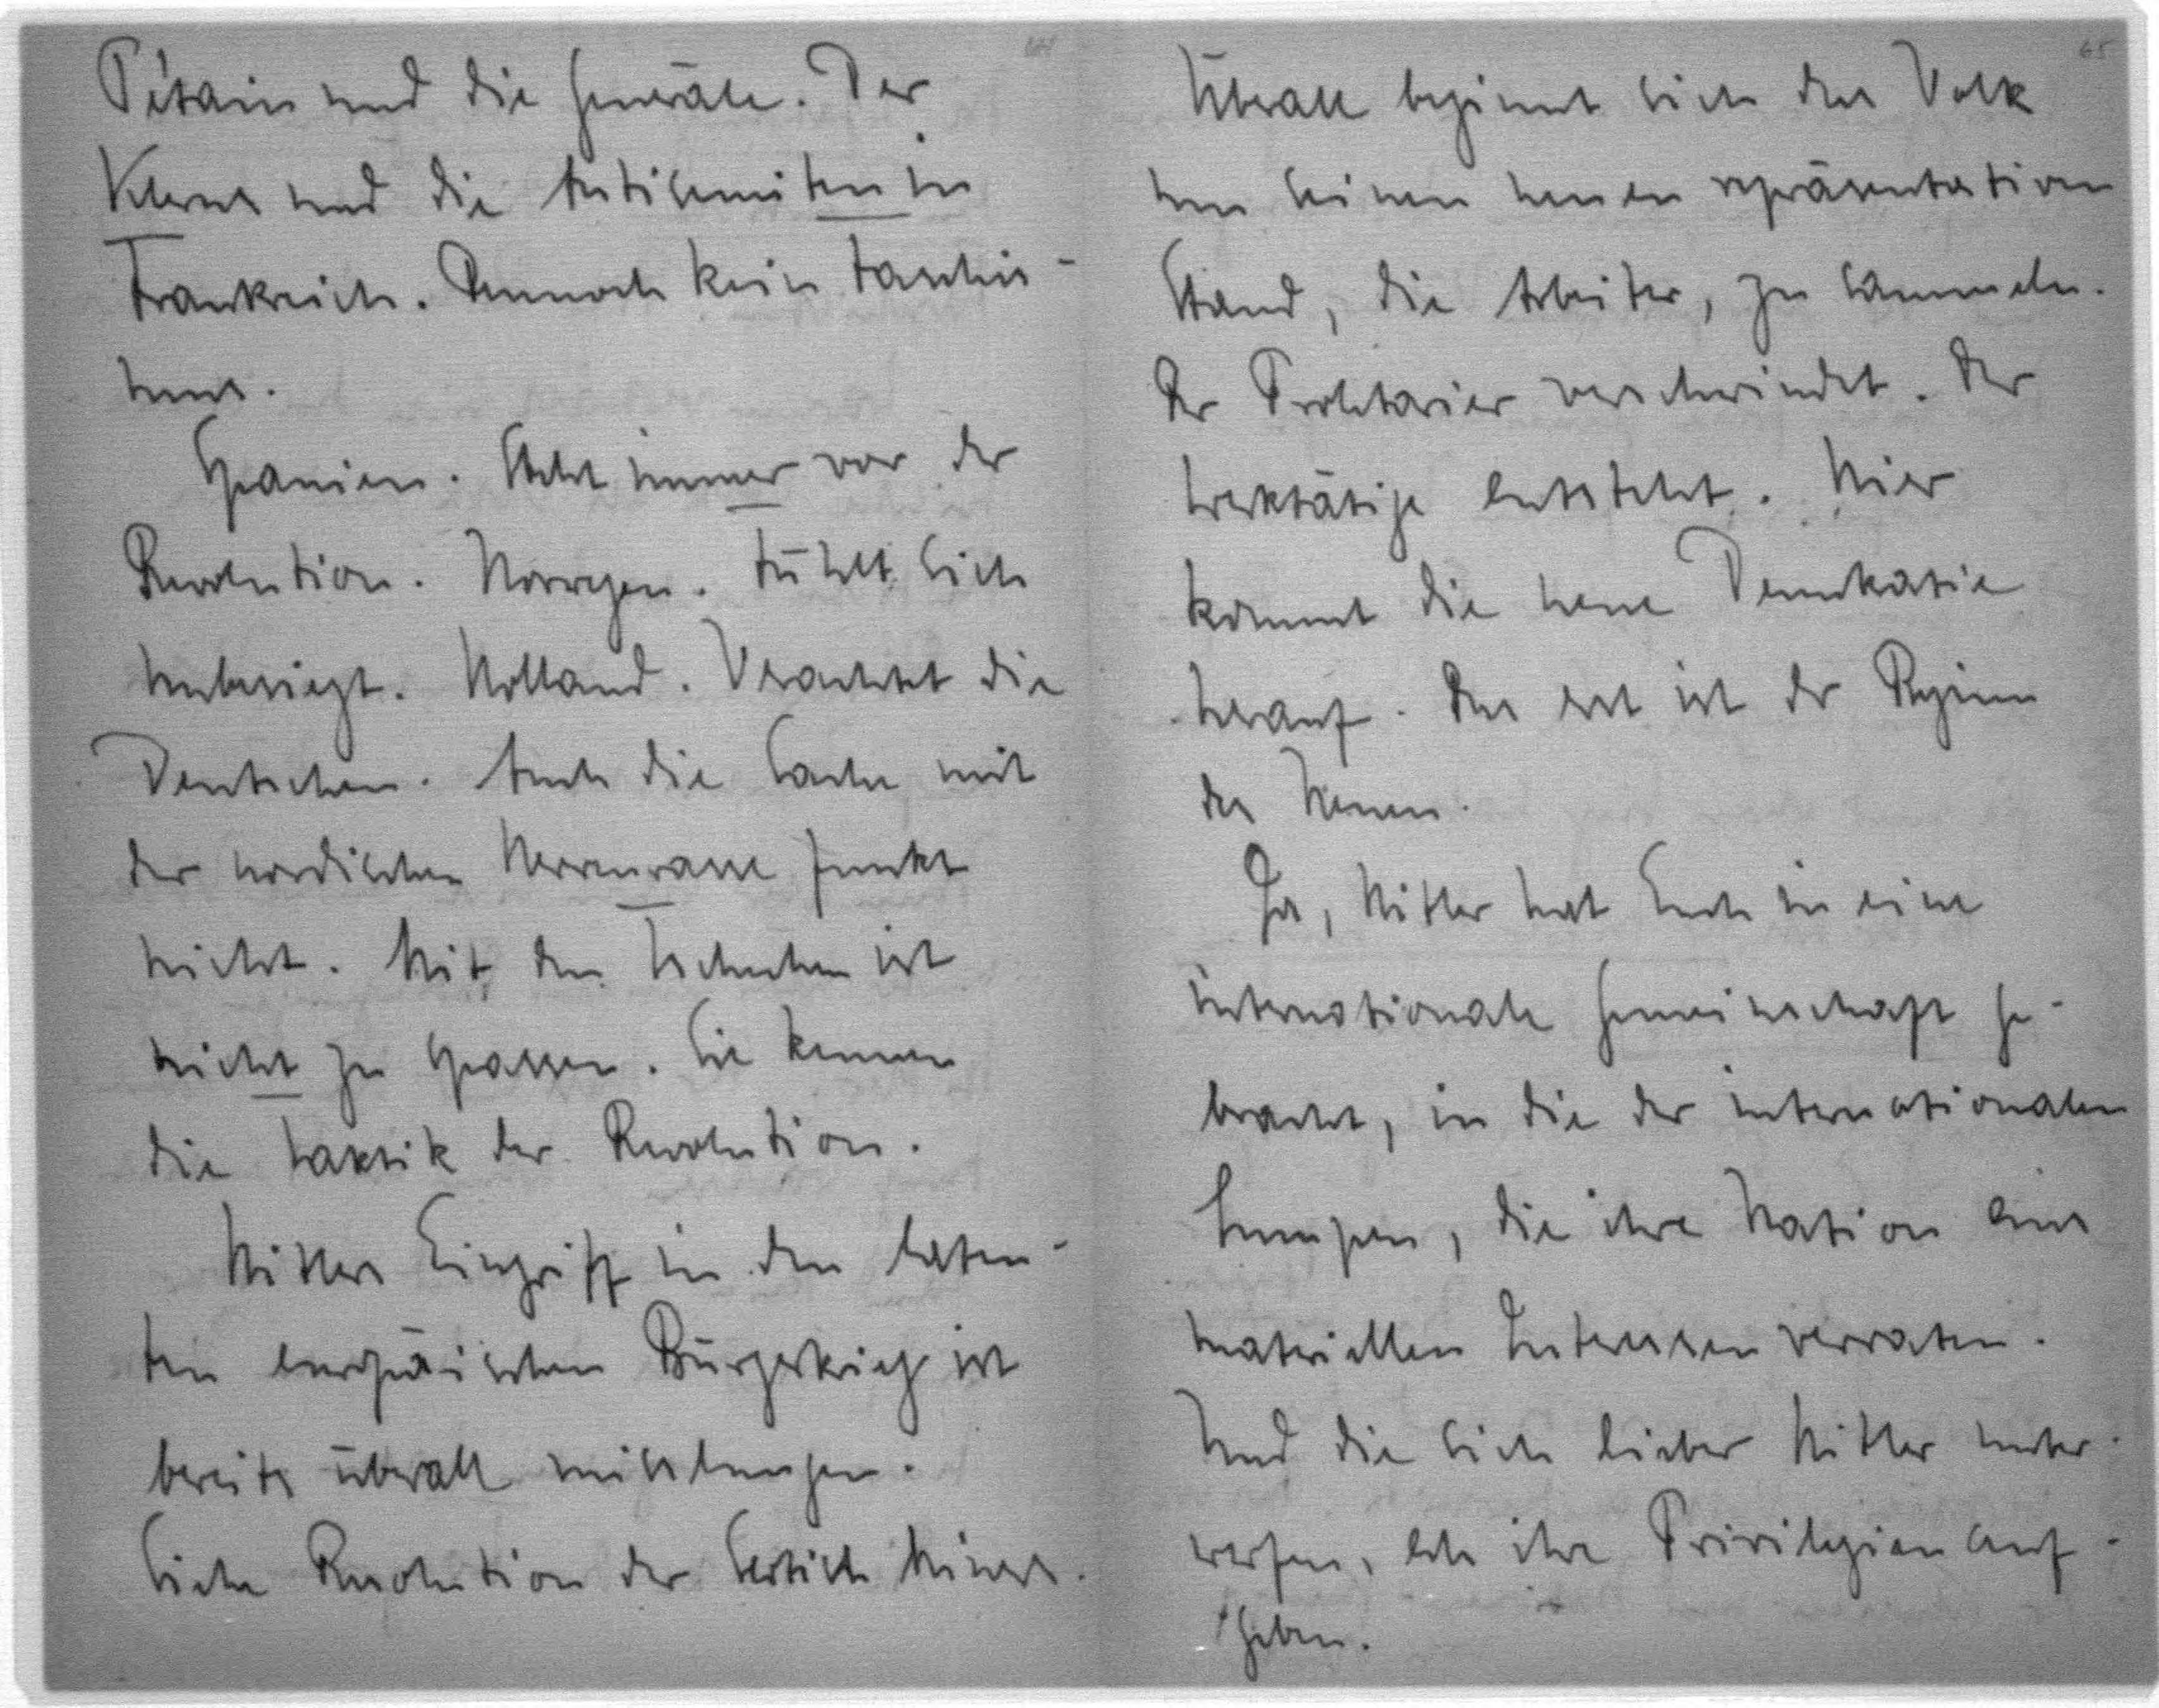 64
Pétain und die Generäle. Der
Klerus und die Antisemiten in
Frankreich. Dennoch kein Faschis-
mus.
Spanien. Steht immer vor der
Revolution. Norwegen. Fühlt sich
unbesiegt. Holland. Verachtet die
Deutschen. Auch die Sache mit
der nordischen Herrenrasse funkt
nicht. Mit den Tschechen ist
nicht zu spassen. Sie kennen
die Taktik der Revolution.
Hitlers Eingriff in den laten-
ten europäischen Bürgerkrieg ist
bereits überall misslungen.
Siehe Revolution der
65
Überall beginnt sich das Volk
um seinen neuen repräsentativen
Stand, die Arbeiter, zu sammeln.
Der Proletarier verschwindet. Der
Werktätige entsteht. Hier
kommt die neue Demokratie
herauf. Das erst ist der Beginn
des Neuen.
Ja, Hitler hat Euch in eine
internationale Gemeinschaft ge-
bracht, in die der internationalen
Lumpen, die ihre Nation aus
materiellen Interessen verraten.
Und die sich lieber Hitler unter-
werfen, eh ihre Privilegien auf-
geben.